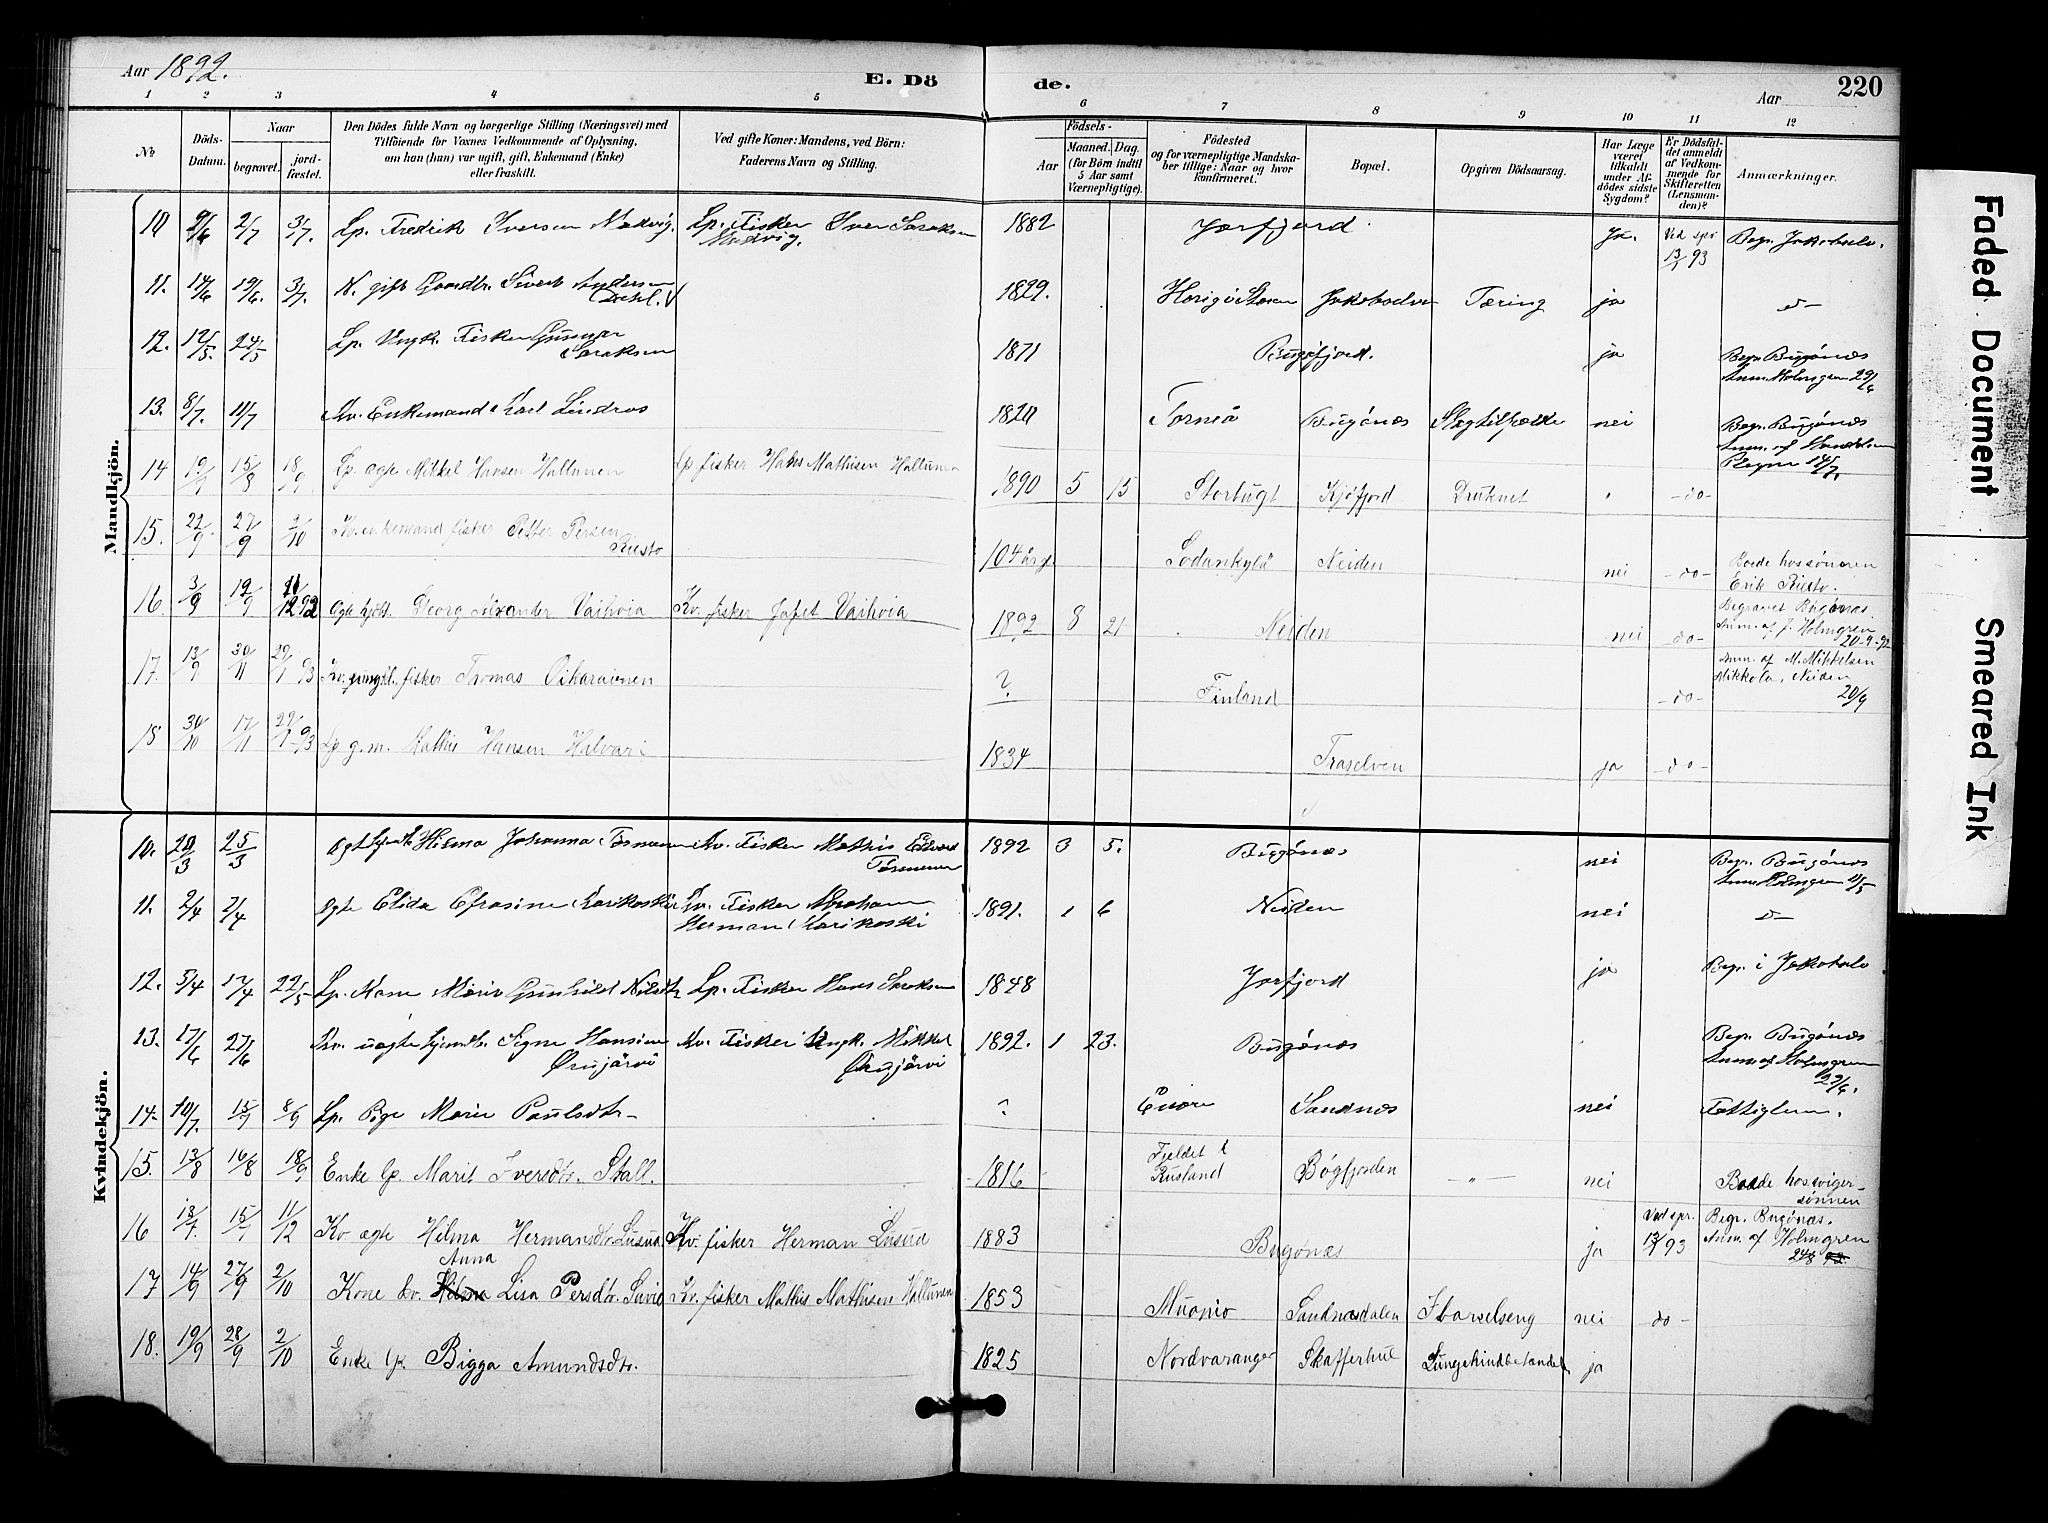 Aar 1892.
E. Dö de.
Aar
220
1 2 3 4 5 6 7 8 9 10 11 12
No
Döds-Datum.
Naar
begravet.
jord-fæstet.
Den Dödes fulde Navn og borgerlige Stilling (Næringsvei) med
Tilföiende for Voxnes Vedkommende af Oplysning,
om han (han) var ugift, gift, Enkemand (Enke)
eller fraskilt.
Ved gifte Koner: Mandens, ved Börn:
Faderens Navn og Stilling.
Födsels-
Aar
Maaned. Dag.
(for Börn indtil
5 Aar samt
Værnepligtige).
Födested
og for værnepligtige Mandska-
ber tillige: Naar og hvor
konfirmeret.
Bopæl.
Opgiven Dödsaarsag.
Har Læge
været
tilkaldt
under Af-
dödes sidste
Sygdom?
Er Dödsfal-
det anmeldt
af Vedkom-
mende for
Skifteretten
(Lensman-
den)?
Anmærkninger.
Mandkjön.
10 2/7 3/7. Lp. Fredrik Iversen Lp. Fisker Iver 1882 Jarfjord. Ja. Ved spr. 13/1 93 Begr. Jakobselv.
11. 14/6 19/6. 3/7. N. gift Sivert Andersen 1829. Jakobselven Tæring ja
12. 12/5. 24/5 Lp. Ungk. Fisker Gunnar 1871 Bugöfjord. ja Begr. Bugönæs Anm. Holmgren 29/6
13. 8/7. 11/7 Kv. Enkemand Karl Lindros Torneå Bugönæs Slagtilfælde nei Begr. Bugönæs
14 15/8 18/9 Lp. ægte Mikkel Hansen Haltunen Lp. fisker Hans Mathisen Haltunen 1890 5 15 Storbugt Kjöfjord Druknet -do-
15. 22/9 27/9 2/10 Kv. enkemand fisker Petter Persen Riesto 104 årg Sodankylä Neiden nei -do- Boede hos sønnen Erik Riesto.
16. 3/9 12/9 11/12 92 Georg Alexander Vaihoia Kv. fisker Jafet Vaihoia 1892 8 21 Neiden nei -do- Begravet Bugönæs Anm. af J. Holmgren 20-9-92
17. 13/9 30/11 29/1 93 Kv. ungkl. fisker Thomas ? Finland -do- Anm. af M. Mikkelsen Mikkola, Neiden 20/9
18 30/10 17/11 29/1-93 Lp g.m. Mathis Hansen Halvari 1834 ja -do-
Kvindekjön.
10. 20/3 25/3 Hilma Johanna Kv. Fisker Mathis Edvard 1892 3 5. Bugönæs nei Begr. Bugönæs Anm. Holmgren 11/5
11. 2/4 ægte Elida Efrosine Karikoski Kv. Fisker Abraham Herman Karikoski 1891. 1 6 Neiden nei
12. 5/4 17/4 22/5 Lp. Kone Marie Gunhild Nilsdtr Lp. Fisker Hans 1848 Jarfjord ja Begr. i Jakobselv
13. 17/6 27/6 Kv. uægte hjemdb. Signe Hansine Kv. Fisker Ungk. Mikkel 1892. 1 23. Bugönæs Begr. Bugönæs Anm. af Holmgren 29/6.
14. 10/7. 15/7 8/9 Lp. Pige Marie Paulsdtr. ? Enare Sandnæs nei Fattiglem.
15. 13/8 16/8 18/9 Enke lp. Marit Iversdtr. Stall. 1816 Fjeldet i Rusland Bögfjorden -"- nei Boede hos sviger-sönnen
16 13/7 15/7 11/12 Kv. ægte Hilma Hermansdtr. Lusua Kv. fisker Herman Lusua 1883 Bugönæs ja Ved spr. 13/1 93 Begr. Bugönæs. Anm. af Holmgren 24/8 92.
17 14/9 27/9 2/10 Kone kv. Hilma Anna Lisa Persdtr. Kv. fisker Mathis Mathisen Haltunen 1853 Muonio Sandnæsdalen I barselseng nei do-
18. 19/9 28/9 2/10 Enke lp. Bigga Amundsdtr. 1825 Nordvaranger Skafferhul Lungehindbetændel ja
Faded Document
Smeared Ink